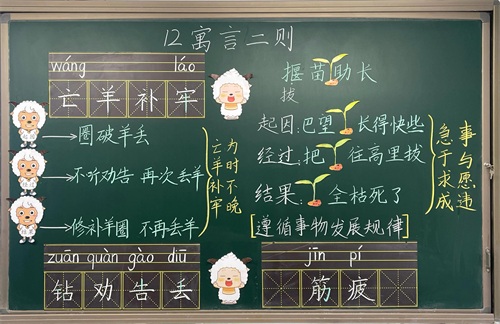 12 寓言二则
wáng láo
亡羊补牢
圈破羊丢
不听劝告 再次丢羊
修补羊圈 不再丢羊
亡羊补牢
为时不晚
zuān quàn gào diū
钻劝告丢
揠苗助长
拔
起因:巴望 长得快些
经过:把 往高里拔
结果: 全枯死了
[遵循事物发展规律]
急于求成
事与愿违
jīn pí
筋疲